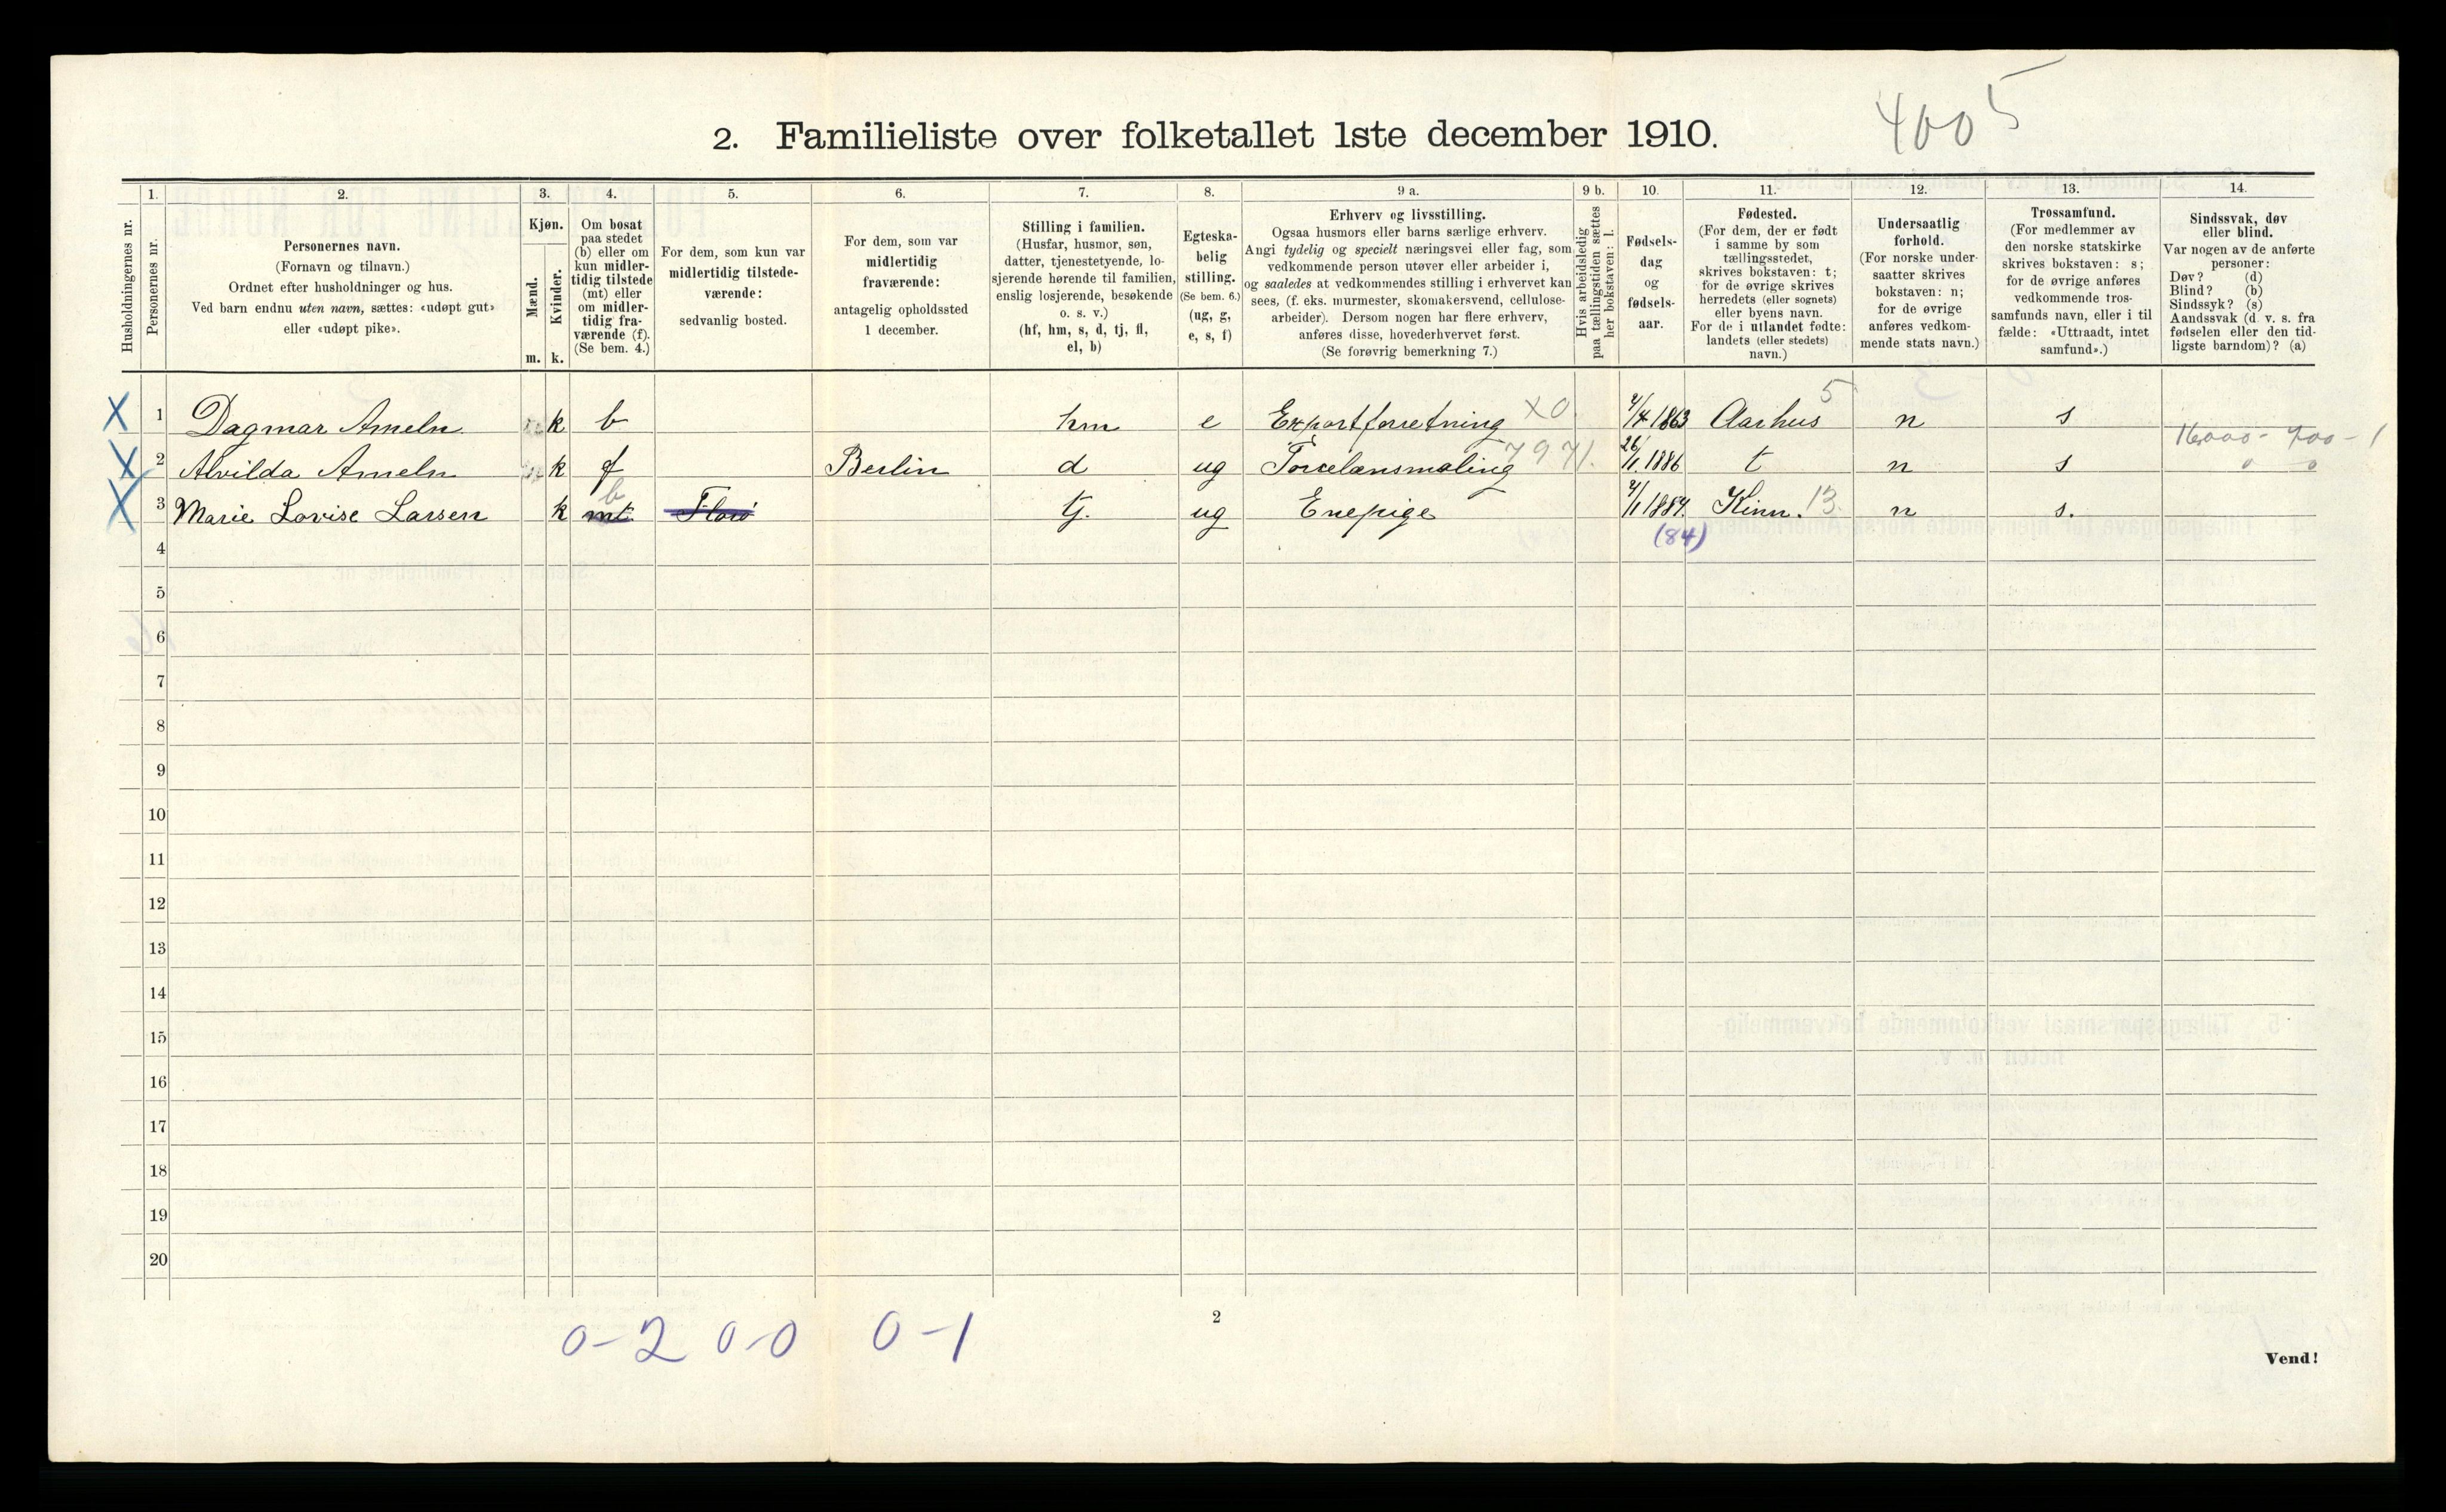 4005
2. Familieliste over folketallet 1ste december 1910.
Husholdningernes nr.
1. Personernes nr.
2. Personernes navn.
(Fornavn og tilnavn.)
Ordnet efter husholdninger og hus.
Ved barn endnu uten navn, sættes: «udøpt gut»
eller «udøpt pike».
3. Kjøn.
Mænd. m.
Kvinder. k.
4. Om bosat
paa stedet
(b) eller om
kun midler-
tidig tilstede
(mt) eller
om midler-
tidig fra-
værende (f).
(Se bem. 4.)
5. For dem, som kun var
midlertidig tilstede-
værende:
sedvanlig bosted.
6. For dem, som var
midlertidig
fraværende:
antagelig opholdssted
1 december.
7. Stilling i familien.
(Husfar, husmor, søn,
datter, tjenestetyende, lo-
sjerende hørende til familien,
enslig losjerende, besøkende
o. s. v.)
(hf, hm, s, d, tj, fl,
el, b)
8. Egteska-
belig
stilling.
(Se bem. 6.)
(ug, g,
e, s, f)
9 a. Erhverv og livsstilling.
Ogsaa husmors eller barns særlige erhverv.
Angi tydelig og specielt næringsvei eller fag, som
vedkommende person utøver eller arbeider i,
og saaledes at vedkommendes stilling i erhvervet kan
sees, (f. eks. murmester, skomakersvend, cellulose-
arbeider). Dersom nogen har flere erhverv,
anføres disse, hovederhvervet først.
(Se forøvrig bemerkning 7.)
9 b. Hvis arbeidsledig
paa tællingstiden sættes
her bokstaven: l.
10. Fødsels-
dag
og
fødsels-
aar.
11. Fødested.
(For dem, der er født
i samme by som
tællingsstedet,
skrives bokstaven: t;
for de øvrige skrives
herredets (eller sognets)
eller byens navn.
For de i utlandet fødte:
landets (eller stedets)
navn.)
12. Undersaatlig
forhold.
(For norske under-
saatter skrives
bokstaven: n;
for de øvrige
anføres vedkom-
mende stats navn.)
13. Trossamfund.
(For medlemmer av
den norske statskirke
skrives bokstaven: s;
for de øvrige anføres
vedkommende tros-
samfunds navn, eller i til
fælde: «Uttraadt, intet
samfund».)
14. Sindssvak, døv
eller blind.
Var nogen av de anførte
personer:
Døv? (d)
Blind? (b)
Sindssyk? (s)
Aandssvak (d. v. s. fra
fødselen eller den tid-
ligste barndom)? (a)
X 1 Dagmar Ameln k b hm e Exportforretning X0 4/4 1863 Aarhus 5 n s
16000 - 400 - 1
X 2 Alvilda Ameln k f Berlin d ug Porcelænsmaling 7971. 26/1. 1886 t n s 0 0
X 3 Marie Lovise Larsen k mt b Florø tj. ug Enepige 4/1 1884. Kinn. 13. n s.
4 (84)
5
6
7
8
9
10
11
12
13
14
15
16
17
18
19
20
0-2 0-0 0-1
2
Vend!